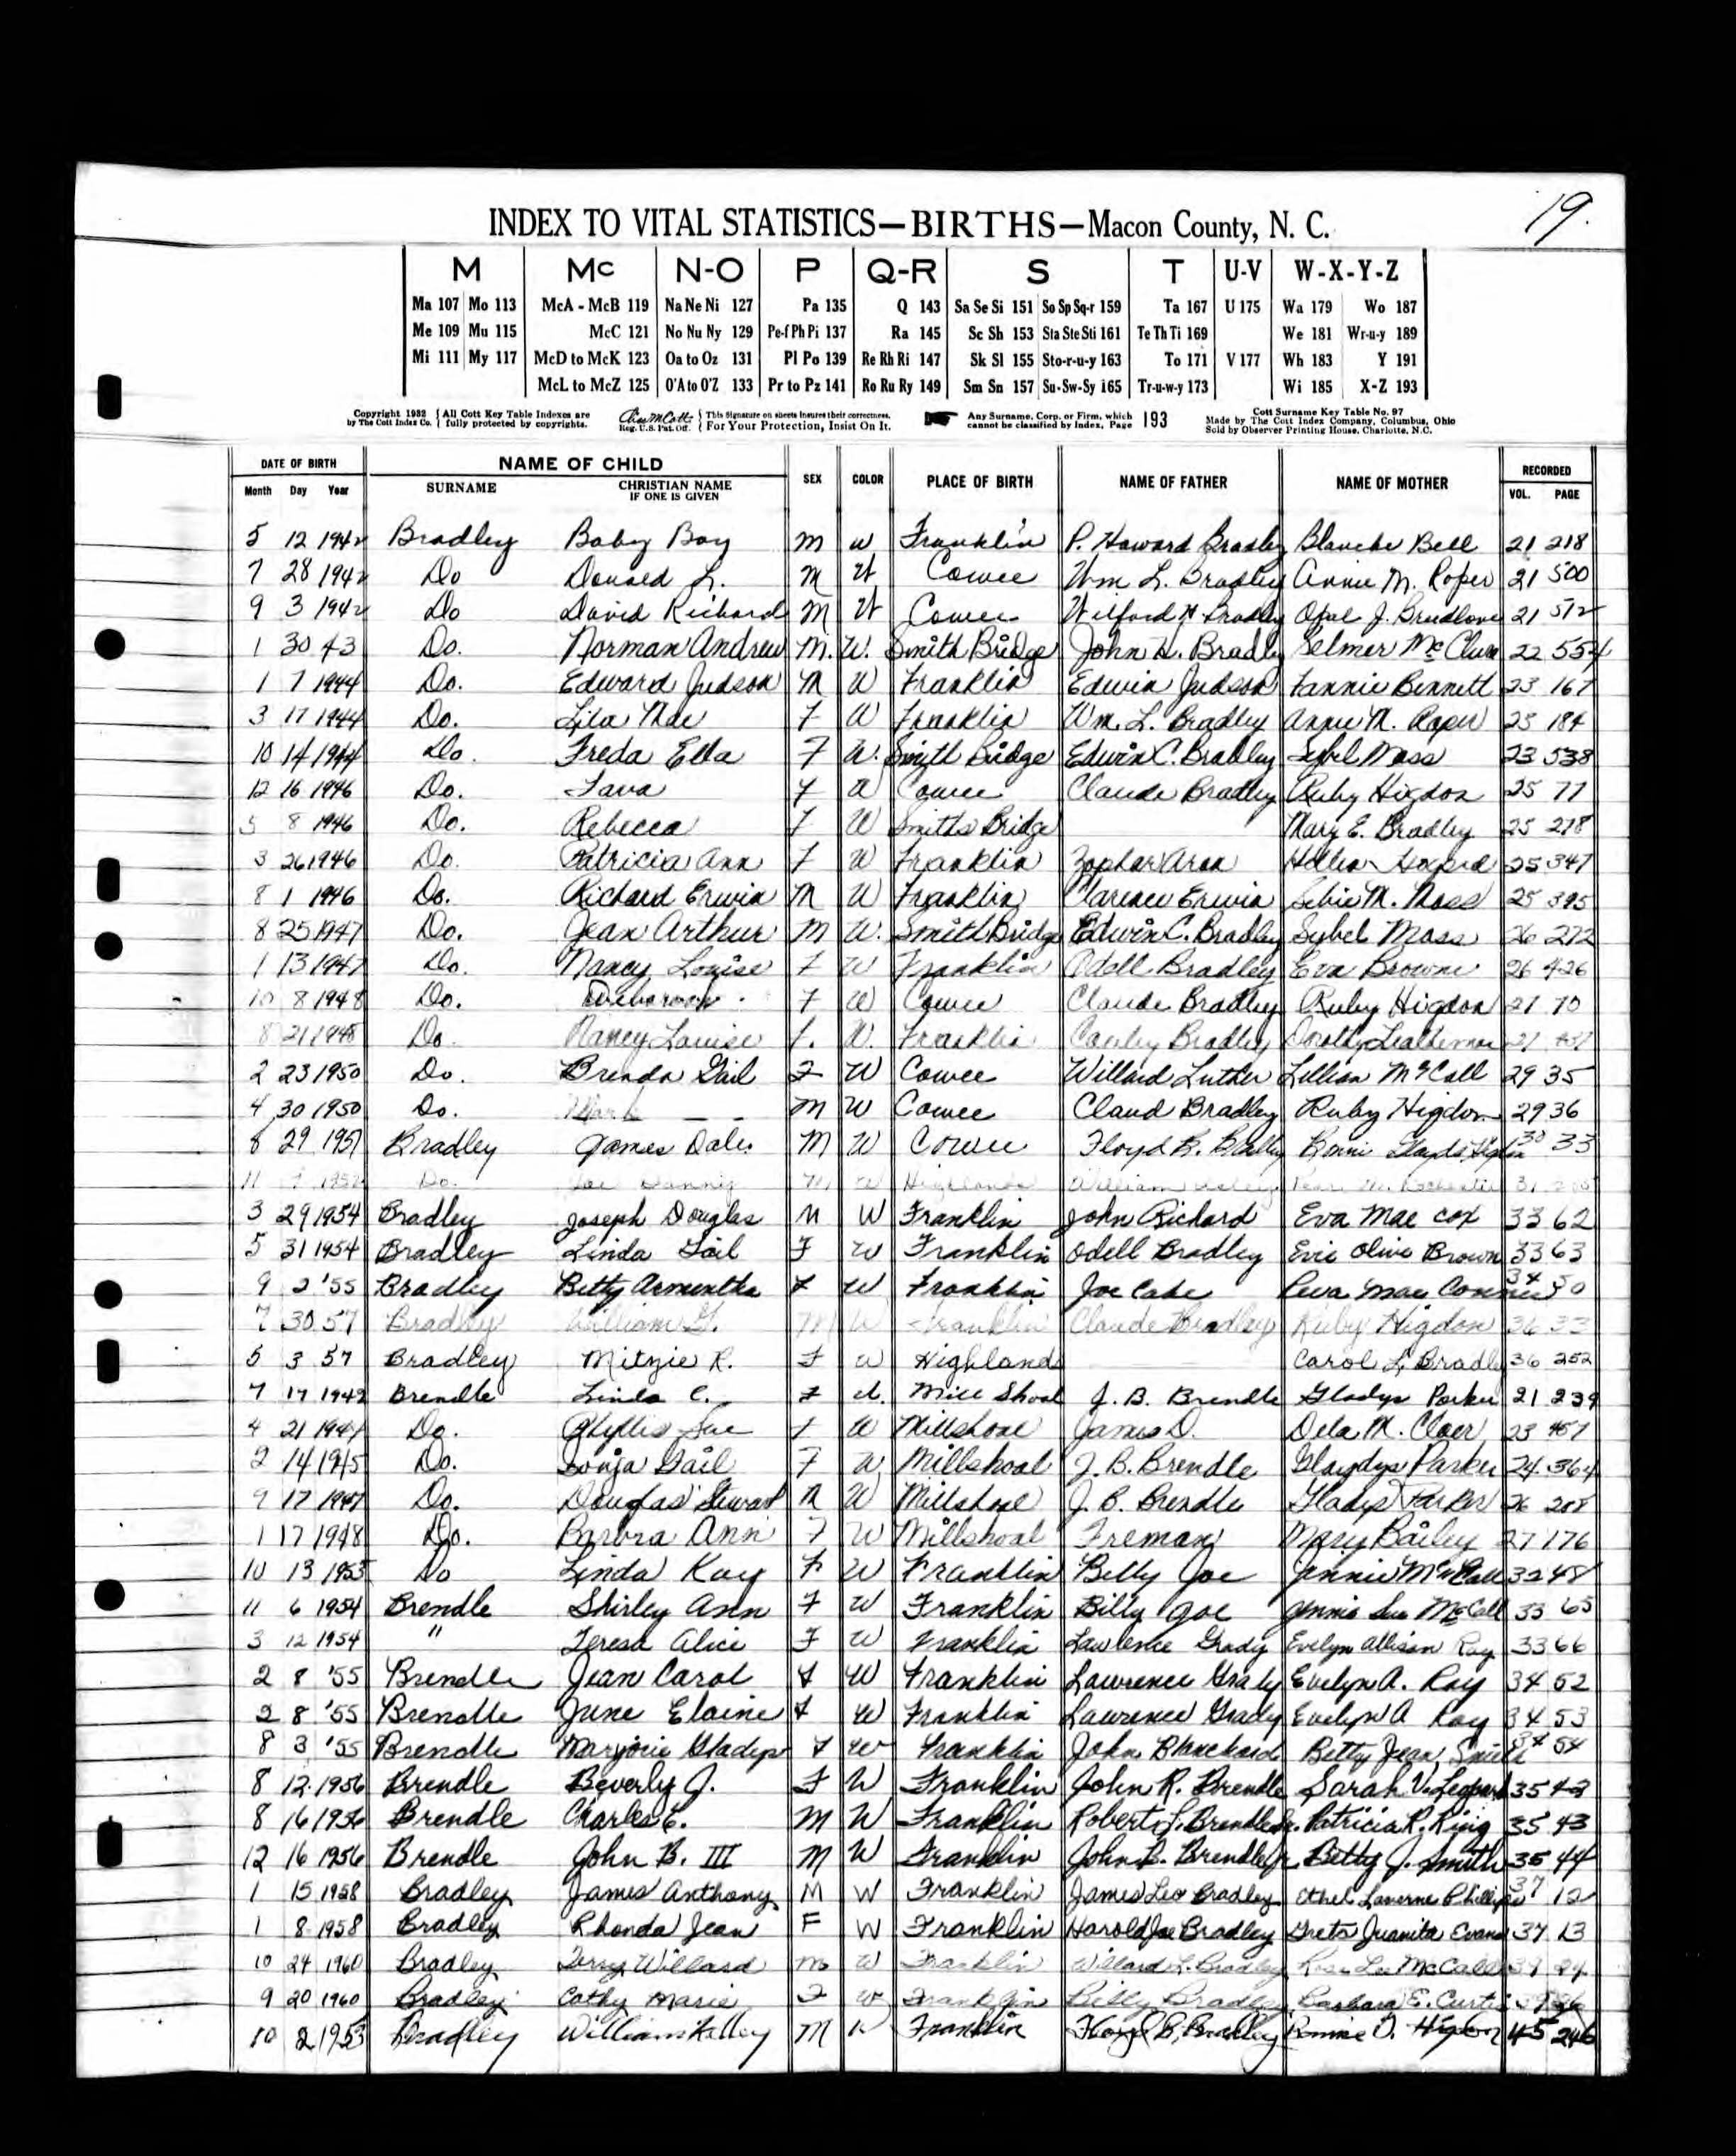 19.
INDEX TO VITAL STATISTICS—BIRTHS—Macon County, N. C.
M Mc N-O P Q-R S T U-V W-X-Y-Z
Ma 107 Mo 113 McA - McB 119 Na Ne Ni 127 Pa 135 Q 143 Sa Se Si 151 So Sp Sq-r 159 Ta 167 U 175 Wa 179 Wo 187
Me 109 Mu 115 McC 121 No Nu Ny 129 Pe-f Ph Pi 137 Ra 145 Sc Sh 153 Sta Ste Sti 161 Te Th Ti 169 We 181 Wr-u-y 189
Mi 111 My 117 McD to McK 123 Oa to Oz 131 Pl Po 139 Re Rh Ri 147 Sk Sl 155 Sto-r-u-y 163 To 171 V 177 Wh 183 Y 191
McL to McZ 125 O'A to O'Z 133 Pr to Pz 141 Ro Ru Ry 149 Sm Sn 157 Su-Sw-Sy 165 Tr-u-w-y 173 Wi 185 X-Z 193
Copyright 1932 by The Cott Index Co. All Cott Key Table Indexes are fully protected by copyrights. Reg. U.S. Pat. Off. This Signature on sheets insures their correctness. For Your Protection, Insist On It. Any Surname, Corp. or Firm, which cannot be classified by Index, Page 193 Cott Surname Key Table No. 97 Made by The Cott Index Company, Columbus, Ohio Sold by Observer Printing House, Charlotte, N.C.
DATE OF BIRTH NAME OF CHILD SEX COLOR PLACE OF BIRTH NAME OF FATHER NAME OF MOTHER RECORDED
Month Day Year SURNAME CHRISTIAN NAME IF ONE IS GIVEN VOL. PAGE
5 12 1942 Bradley Baby Boy M W Franklin P. Howard Bradley Blanche Bell 21 218
7 28 1942 Do Donald L. M W Cowee Wm L. Bradley Annie M. Roper 21 500
9 3 1942 Do David Richard M W Cowee Wilford H Bradley Opal J. Breedlove 21 512
1 30 43 Do. Norman Andrew M. W. Smith Bridge John H. Bradley Selmer McClure 22 554
1 7 1944 Do. Edward Judson M W Franklin Edwin Judson Fannie Bennett 23 167
3 17 1944 Do. Lila Mae F W Franklin Wm. L. Bradley Annie M. Roper 23 184
10 14 1944 Do. Freda Ella F W. Smith Bridge Edwin C. Bradley Sybel Moss 23 538
12 16 1946 Do. F W Cowee Claude Bradley Ruby Higdon 25 77
8 1946 Do. Rebecca F W Smiths Bridge Mary E. Bradley 25 278
3 26 1946 Do. Patricia Ann F W Franklin 25 347
8 1 1946 Do. Richard Erwin M W Franklin Clarence Erwin M. Moss 25 395
8 25 1947 Do. Jean Arthur M W. Smith Bridge Edwin C. Bradley Sybel Moss 26 272
1 13 1947 Do. Nancy Louise F W Franklin Odell Bradley Eva Browne 26 426
10 8 1948 Do. F W Cowee Claude Bradley Ruby Higdon 27 70
8 21 1948 Do. Nancy Louise F. W. Franklin Bradley 27
2 23 1950 Do. Brenda Gail F W Cowee Willard Luther Lillian McCall 29 35
4 30 1950 Do. Mark — — M W Cowee Claud Bradley Ruby Higdon 29 36
8 29 1951 Bradley James Dale M W Cowee Floyd B. Bradley 30 33
11 1952 Do. M W Highlands William 31
3 29 1954 Bradley Joseph Douglas M W Franklin John Richard Eva Mae Cox 33 62
5 31 1954 Bradley Linda Gail F W Franklin Odell Bradley Evie Olive Brown 33 63
9 2 '55 Bradley Betty Armintha F W Franklin Joe Cabe Mae 34 50
7 30 57 Bradley William G. M W Franklin Claude Bradley Ruby Higdon 36 33
5 3 57 Bradley Mitzie R. F W Highlands Carol L. Bradley 36 252
7 17 1942 Brendle Linda C. F W. Mill Shoal J. B. Brendle Gladys Parker 21 239
4 21 1944 Do. Phyllis Sue F W Millshoal James D. Dela M. Cloer 23 457
2 14 1945 Do. Sonja Gail F W Millshoal J. B. Brendle Glaydys Parker 24 364
9 17 1947 Do. Douglas Stewart M W Millshoal J. B. Brendle Gladys Parker 26 208
1 17 1948 Do. Barbra Ann F W Millshoal Freman Mary Bailey 27 176
10 13 1953 Do Linda Kay F W Franklin Billy Joe Jennie McCall 32 48
11 6 1954 Brendle Shirley Ann F W Franklin Billy Joe Jennie Sue McCall 33 65
3 12 1954 " Teresa Alice F W Franklin Lawrence Grady Evelyn Allison Ray 33 66
2 8 '55 Brendle Jean Carol F W Franklin Lawrence Grady Evelyn A. Ray 34 52
2 8 '55 Brendle June Elaine F W Franklin Lawrence Grady Evelyn A Ray 34 53
8 3 '55 Brendle Marjorie Gladys F W Franklin John Blanchard Betty Jean Smith 34 54
8 12 1956 Brendle Beverly J. F W Franklin John R. Brendle Sarah V. Ledford 35 42
8 16 1956 Brendle Charles E. M W Franklin Robert L. Brendle Jr. Patricia R. King 35 43
12 16 1956 Brendle John B. III M W Franklin John B. Brendle Jr. Betty J. Smith 35 44
1 15 1958 Bradley James Anthony M W Franklin James Leo Bradley Ethel Laverne Phillips 37 12
1 8 1958 Bradley Rhonda Jean F W Franklin Harold Joe Bradley Greta Juanita Evans 37 13
10 24 1960 Bradley Terry Willard M W Franklin Willard L. Bradley McCall 39 24
9 20 1960 Bradley Cathy Marie F W Franklin Billy Bradley Barbara E. Curtis
10 2 1953 Bradley William Kelley M W Franklin Floyd B. Bradley Higdon 45 246